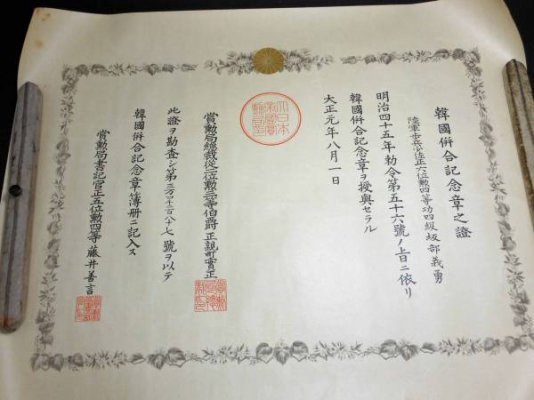 韓國併合記念章之證
陸軍歩兵少佐正六位勲四等功四級坂部義勇
明治四十五年勅令第五十六號ノ上旨ニ依リ
韓國併合記念章ヲ授與セラル
大正元年八月一日
大日本帝國賞勲局印
賞勲局總裁從二位勲二等伯爵正親町實正
此證ヲ勘査シ第三万二千二百八十七號ヲ以テ
韓國併合記念章簿册ニ記入ス
賞勲局書記官正五位勲四等藤井善言